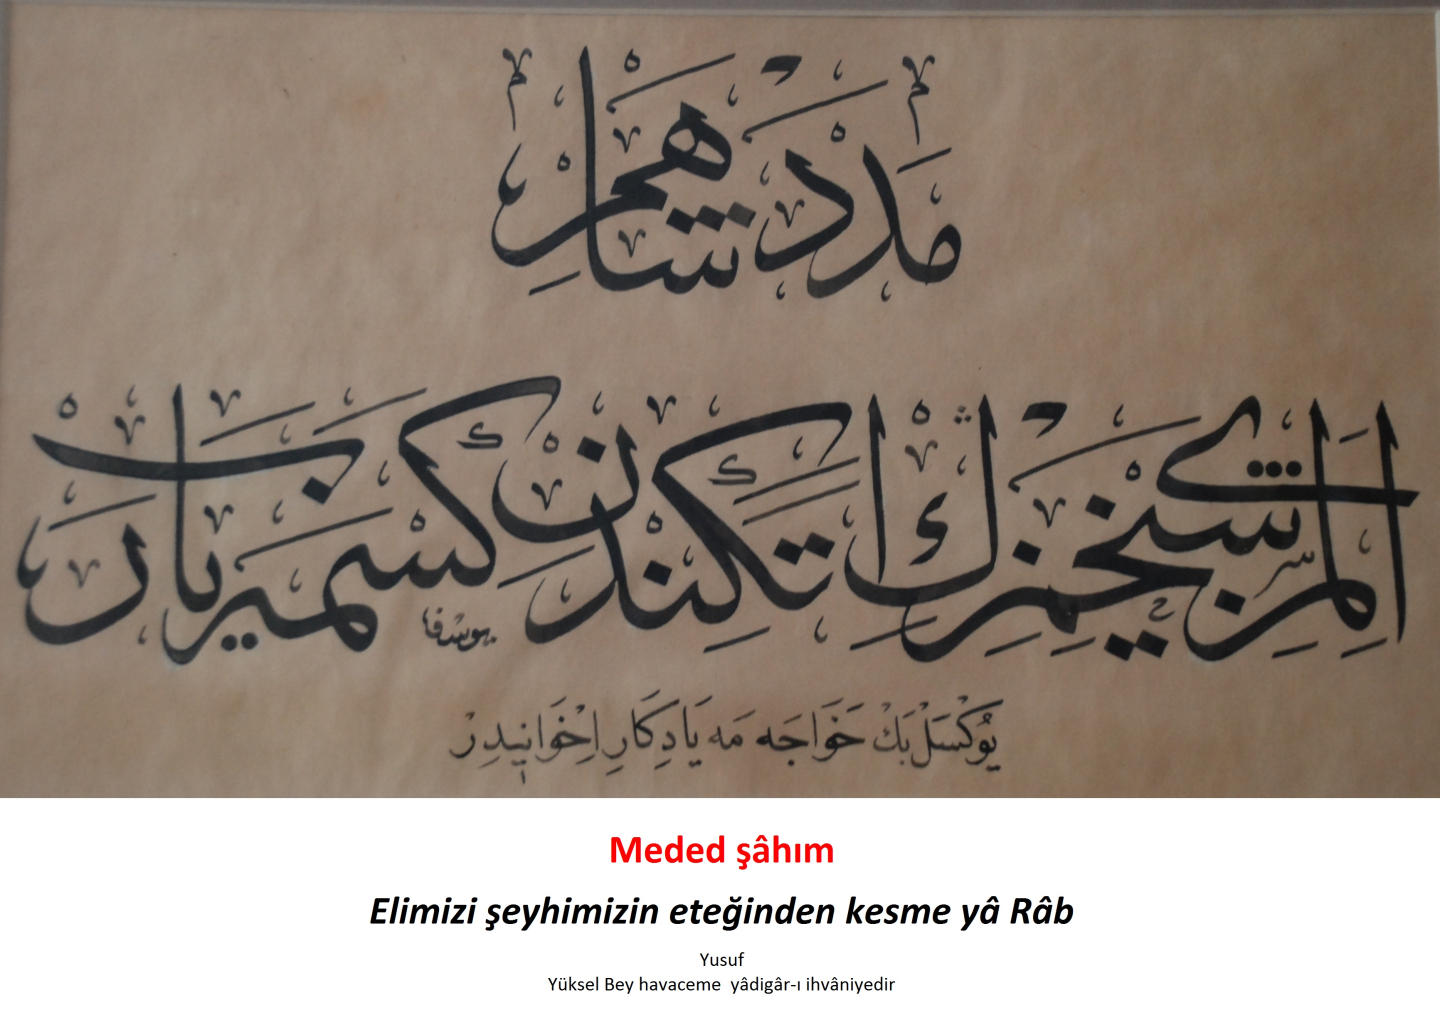 مدد شاهم
المزی شیخمزك اتكندن كسمه یا رب
یوسف
یُوكْسَلْ بَكْ خَوَاجَه مَه یَادِكَارِ اِخْوَانِیدِرْ
Meded şâhım
Elimizi şeyhimizin eteğinden kesme yâ Râb
Yusuf
Yüksel Bey havaceme yâdigâr-ı ihvâniyedir